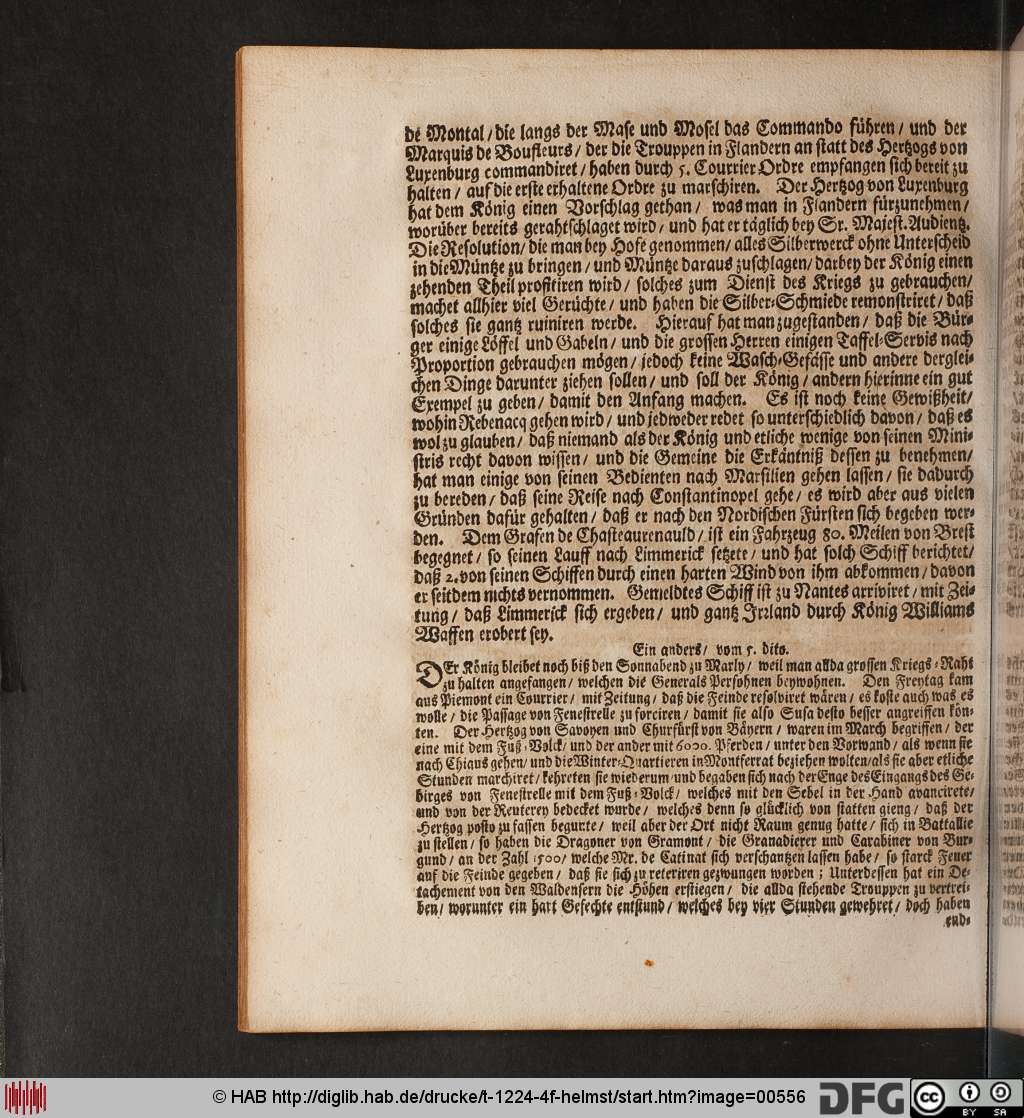 de Montal / die langs der Mase und Mosel das Commando führen / und der
Marquis de Boufleurs / der die Trouppen in Flandern an statt des Hertzogs von
Luxenburg commandiret / haben durch 5. Courrier Ordre empfangen sich bereit zu
halten / auf die erste erhaltene Ordre zu marschiren. Der Hertzog von Luxenburg
hat dem König einen Vorschlag gethan / was man in Flandern fürzunehmen /
worüber bereits gerahtschlaget wird / und hat er täglich bey Sr. Majest. Audientz.
Die Resolution / die man bey Hofe genommen / alles Silberwerck ohne Unterscheid
in die Müntze zu bringen / und Müntze daraus zuschlagen / darbey der König einen
zehenden Theil profitiren wird / solches zum Dienst des Kriegs zu gebrauchen /
machet allhier viel Gerüchte / und haben die Silber-Schmiede remonstriret / daß
solches sie gantz ruiniren werde. Hierauf hat man zugestanden / daß die Bür-
ger einige Löffel und Gabeln / und die grossen Herren einigen Taffel-Servis nach
Proportion gebrauchen mögen / jedoch keine Wasch-Gefässe und andere derglei-
chen Dinge darunter ziehen sollen / und soll der König / andern hierinne ein gut
Exempel zu geben / damit den Anfang machen. Es ist noch keine Gewißheit /
wohin Rebenacq gehen wird / und jedweder redet so unterschiedlich davon / daß es
wol zu glauben / daß niemand als der König und etliche wenige von seinen Mini-
stris recht davon wissen / und die Gemeine die Erkäntniß dessen zu benehmen /
hat man einige von seinen Bedienten nach Marsilien gehen lassen / sie dadurch
zu bereden / daß seine Reise nach Constantinopel gehe / es wird aber aus vielen
Gründen dafür gehalten / daß er nach den Nordischen Fürsten sich begeben wer-
den. Dem Grafen de Chasteaurenauld / ist ein Fahrzeug 80. Meilen von Brest
begegnet / so seinen Lauff nach Limmerick setzete / und hat solch Schiff berichtet /
daß 2. von seinen Schiffen durch einen harten Wind von ihm abkommen / davon
er seitdem nichts vernommen. Gemeldtes Schiff ist zu Nantes arriviret / mit Zei-
tung / daß Limmerick sich ergeben / und gantz Irrland durch König Williams
Waffen erobert sey.
Ein anders / vom 5. dito.
DEr König bleibet noch biß den Sonnabend zu Marly / weil man allda grossen Kriegs-Raht
zu halten angefangen / welchen die Generals Persohnen beywohnen. Den Freytag kam
aus Piemont ein Courrier / mit Zeitung / daß die Feinde resolviret wären / es koste auch was es
wolle / die Passage von Fenestrelle zu forciren / damit sie also Susa desto besser angreiffen kön-
ten. Der Hertzog von Savoyen und Churfürst von Bäyern / waren im March begriffen / der
eine mit dem Fuß-Volck / und der ander mit 6000. Pferden / unter den Vorwand / als wenn sie
nach Chiaus gehen / und die Winter-Quartieren in Montferrat beziehen wolten / als sie aber etliche
Stunden marchiret / kehreten sie wiederum / und begaben sich nach der Enge des Eingangs des Ge-
birges von Fenestrelle mit dem Fuß-Volck / welches mit den Sebel in der Hand avancirete /
und von der Reuterey bedecket wurde / welches denn so glücklich von statten gieng / daß der
Hertzog posto zu fassen begunte / weil aber der Ort nicht Raum genug hatte / sich in Battallie
zu stellen / so haben die Dragoner von Gramont / die Granadierer und Carabiner von Bur-
gund / an der Zahl 1500 / welche Mr. de Catinat sich verschantzen lassen habe / so starck Feuer
auf die Feinde gegeben / daß sie sich zu reteriren gezwungen worden ; Unterdessen hat ein De-
tachement von den Waldensern die Höhen erstiegen / die allda stehende Trouppen zu vertrei-
ben / worunter ein hart Gefechte entstund / welches bey vier Stunden gewehret / doch haben
end-
© HAB http://diglib.hab.de/drucke/t-1224-4f-helmst/start.htm?image=00556
DFG
cc BY SA